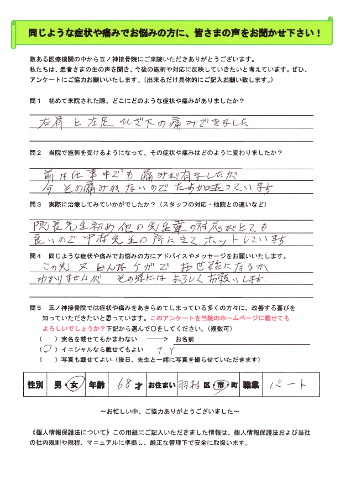 同じような症状や痛みでお悩みの方に、皆さまの声をお聞かせ下さい！
数ある医療機関の中から五ノ神接骨院にご来院いただきありがとうございます。
私たちは、患者さまの生の声を聞き、今後の施術や対応に反映していきたいと考えています。ぜひ、
アンケートにご協力お願いいたします。（出来るだけ具体的にご記入お願い致します。）
問１ 初めて来院された際、どこにどのような症状や痛みがありましたか？
左肩と左足 ヒザ下の痛みできました
問２ 当院で施術を受けるようになって、その症状や痛みはどのように変わりましたか？
前は仕事中でも痛みが有ましたが
今その痛みがないのでたすかっています
問３ 実際に治療してみていかがでしたか？（スタッフの対応・他院との違いなど）
院長先生初め他の先生輩の対応がとても
良いので中本先生の所に来てホットしています
問４ 同じような症状や痛みでお悩みの方にアドバイスやメッセージをお願いいたします。
この先又どんなケガでお世話になるか
わかりませんが その時にはよろしくお願いします
問５ 五ノ神接骨院では症状や痛みをあきらめてしまっている多くの方々に、改善する喜びを
知っていただきたいと思っています。このアンケートを当院のホームページに載せても
よろしいでしょうか？下記から選んで○をしてください。（複数可）
（　）実名を載せてもかまわない ――→ お名前
（○）イニシャルなら載せてもよい T.Y
（　）写真も載せてよい（後日、先生と一緒に写真を撮らせていただきます）
性別 男・女 年齢 68才 お住まい 羽村 区・市・町 職業 パート
～お忙しい中、ご協力ありがとうございました～
《個人情報保護法について》この用紙にご記入いただきました情報は、個人情報保護法および当社
の社内規則や規程、マニュアルに準拠し、厳正な管理下で安全に取扱います。